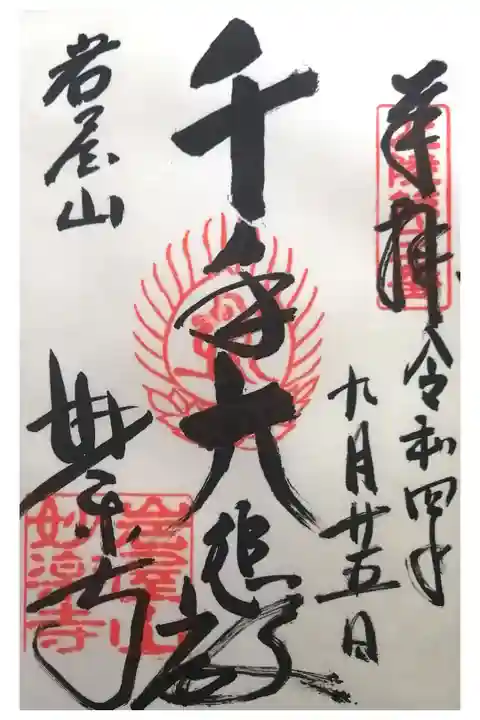 奉拝
令和四年
九月廿五日
千手大悲殿
岩屋山
妙楽寺
岩屋山
妙楽寺